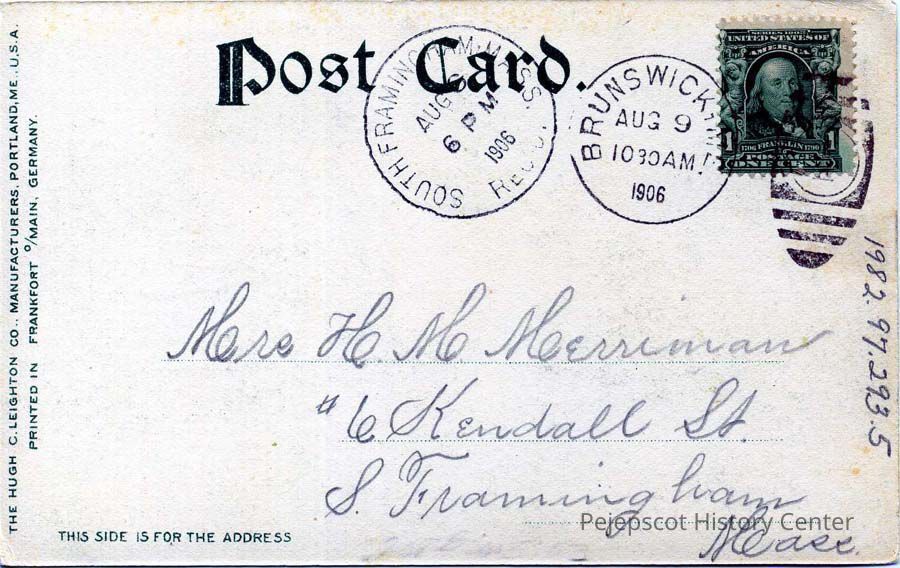 Post Card.
SOUTH FRAMINGHAM MASS
AUG
6 PM
1906
REC'D.
BRUNSWICK, ME.
AUG 9
1030AM
1906
SERIES 1902
UNITED STATES OF
AMERICA
1 1
1706 FRANKLIN 1790
POSTAGE
ONE CENT
THE HUGH C. LEIGHTON CO., MANUFACTURERS, PORTLAND, ME., U.S.A.
PRINTED IN FRANKFORT O/MAIN, GERMANY.
1982.97.293.5
Mrs H M Merriman
#6 Kendall St.
S. Framingham
Mass.
THIS SIDE IS FOR THE ADDRESS
Pejepscot History Center